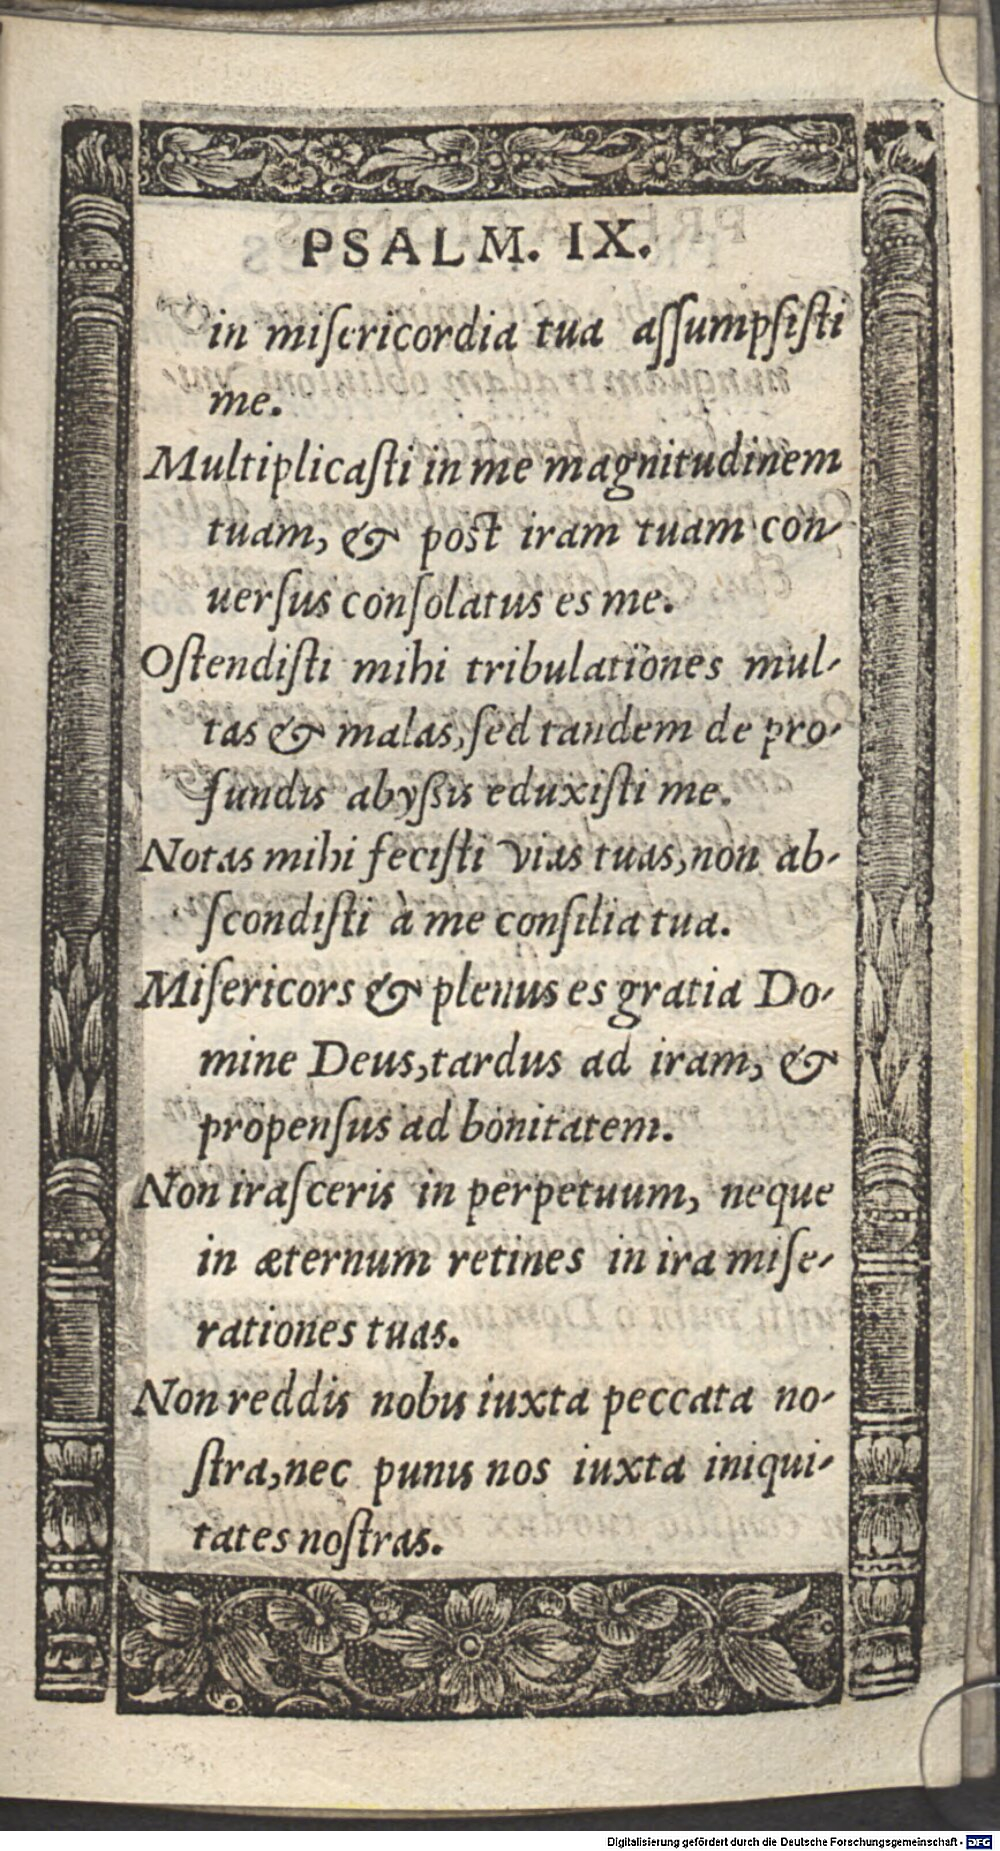 PSALM. IX.
in miſericordia tua aſſumpſiſti
me.
Multiplicaſti in me magnitudinem
tuam, & poſt iram tuam con-
uerſus conſolatus es me.
Oſtendiſti mihi tribulationes mul-
tas & malas, ſed tandem de pro-
fundis abyſſis eduxiſti me.
Notas mihi feciſti vias tuas, non ab-
ſcondiſti à me conſilia tua.
Miſericors & plenus es gratia Do-
mine Deus, tardus ad iram, &
propenſus ad bonitatem.
Non iraſceris in perpetuum, neque
in æternum retines in ira miſe-
rationes tuas.
Non reddis nobis iuxta peccata no-
ſtra, nec punis nos iuxta iniqui-
tates noſtras.
Digitalisierung gefördert durch die Deutsche Forschungsgemeinschaft - DFG